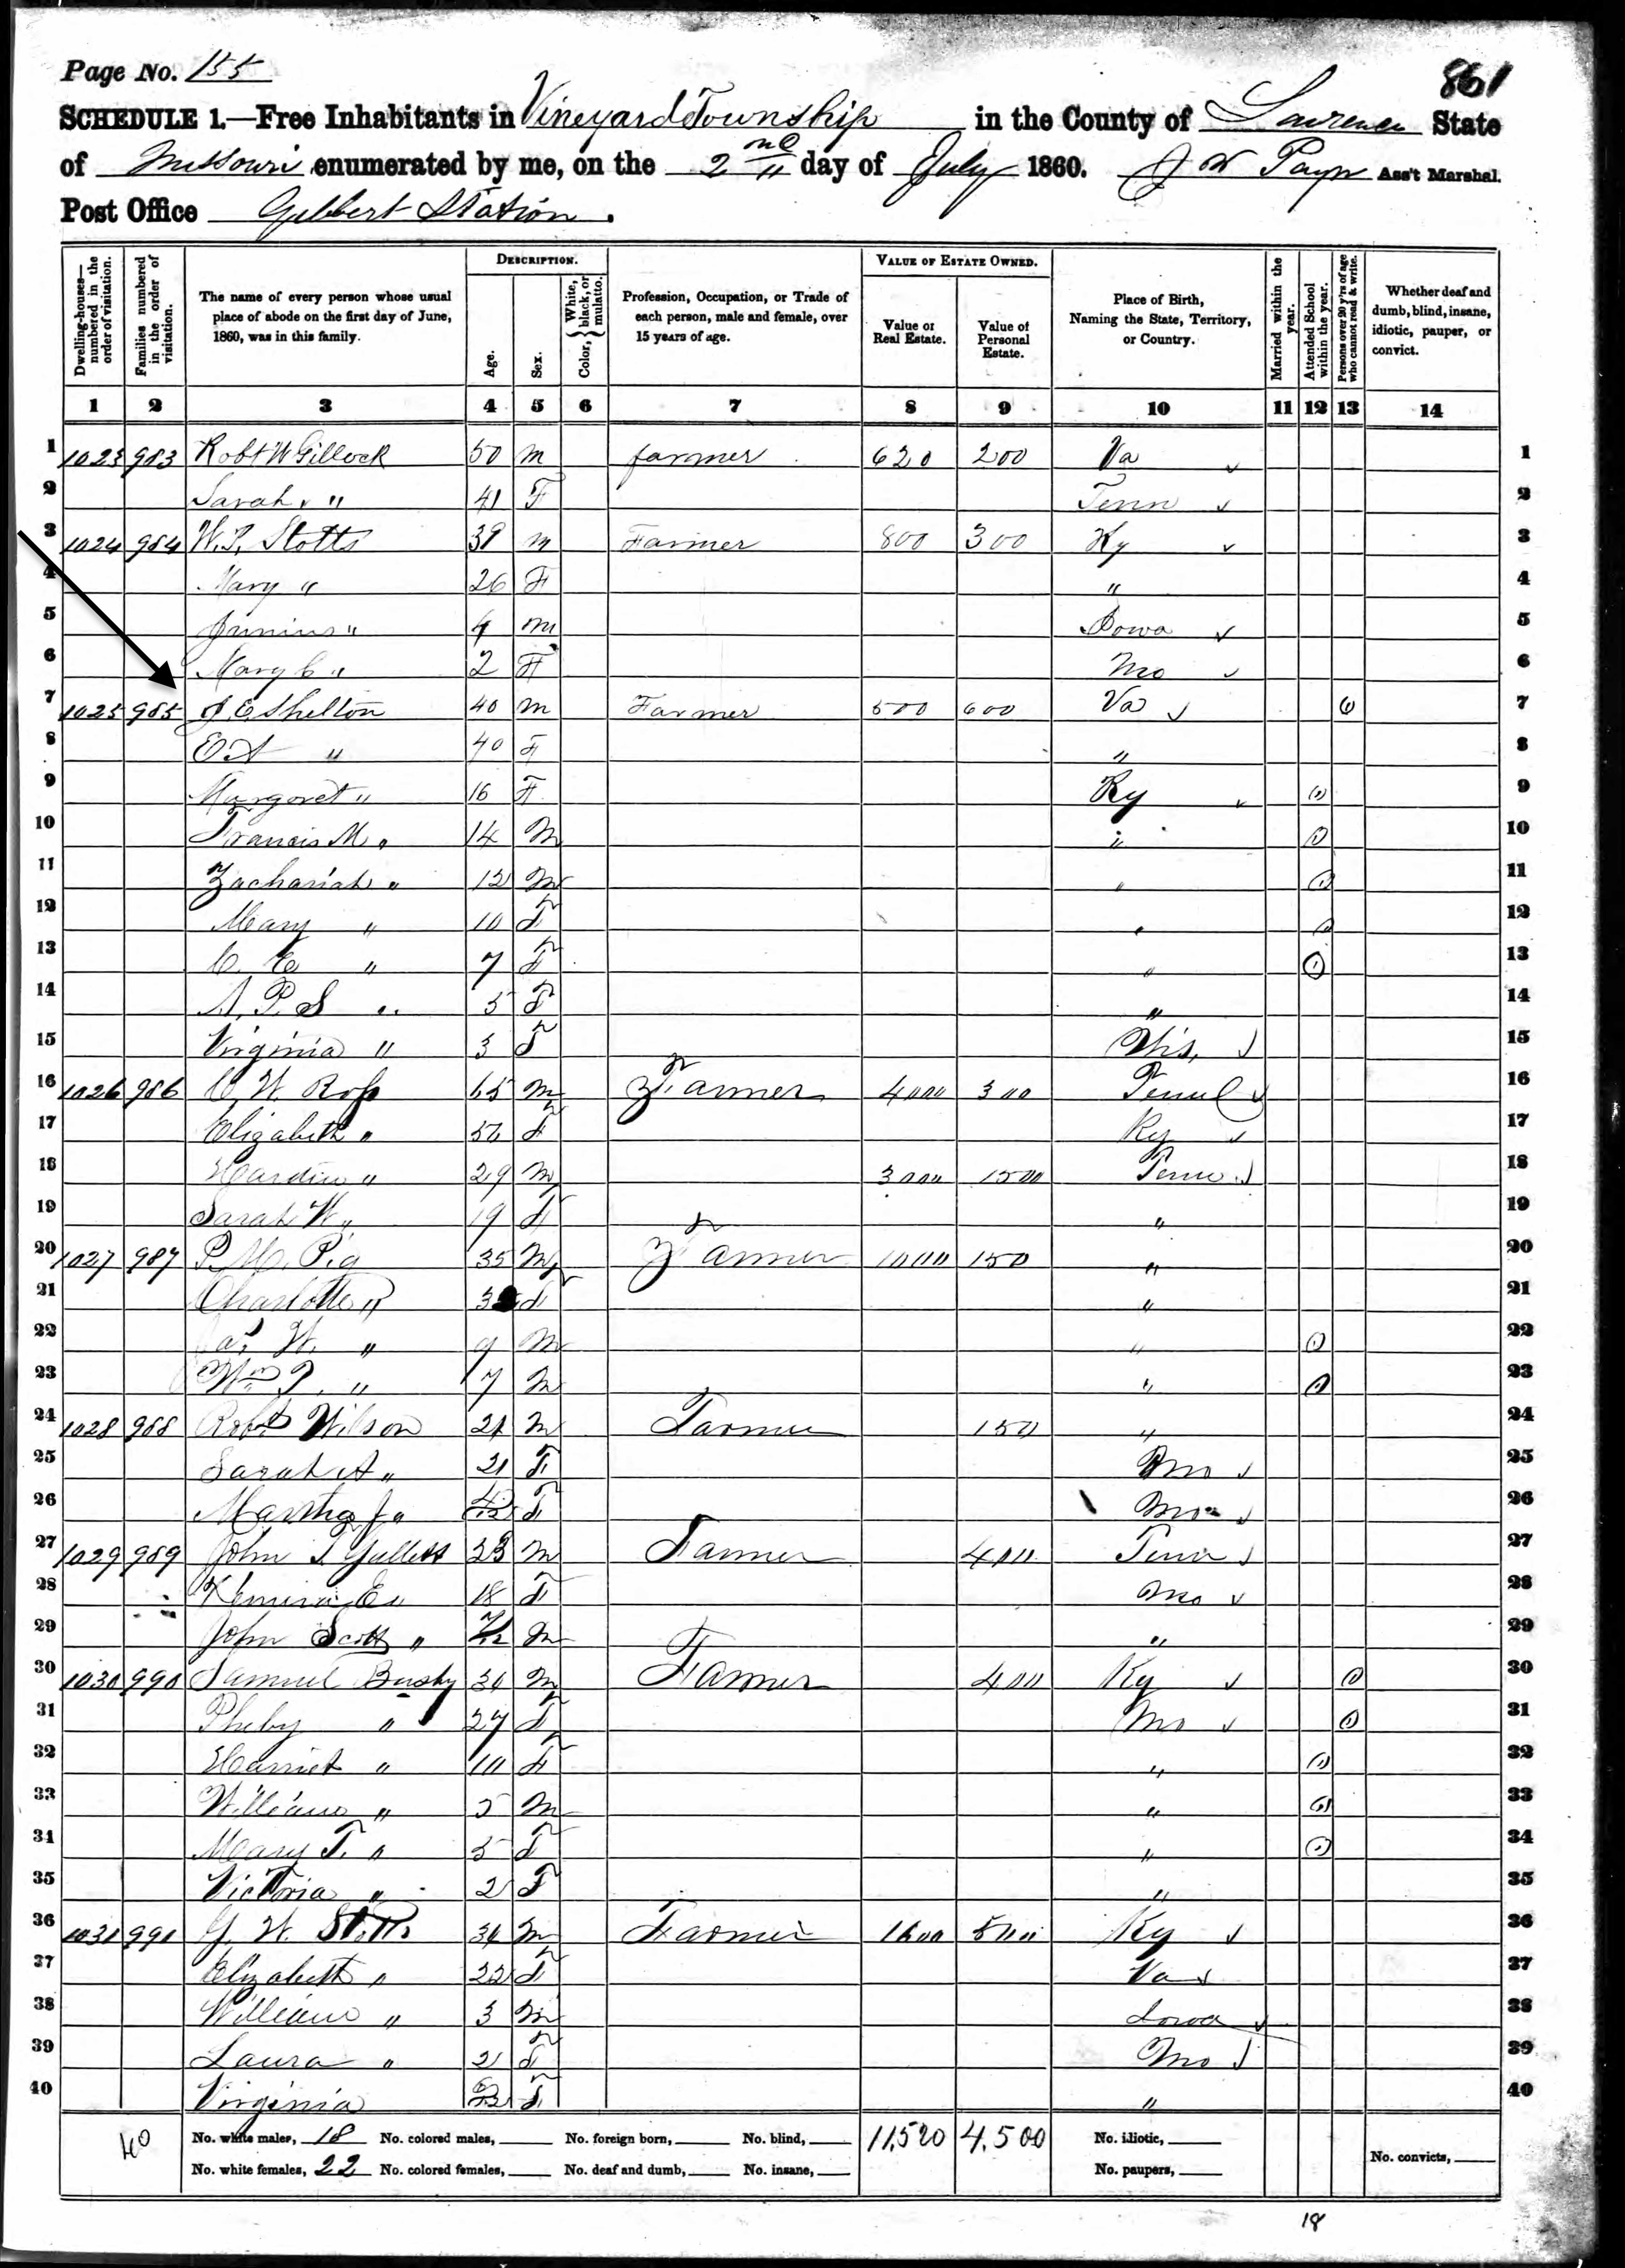 Page No. 155
861
SCHEDULE 1.—Free Inhabitants in Vineyard Township in the County of Lawrence State
of Missouri enumerated by me, on the 2nd day of July 1860. J W Ass't Marshal.
Post Office Gilbert Station.
Dwelling-houses—numbered in the order of visitation.
Families numbered in the order of visitation.
The name of every person whose usual place of abode on the first day of June, 1860, was in this family.
DESCRIPTION.
Age.
Sex.
Color, { White, black, or mulatto.
Profession, Occupation, or Trade of each person, male and female, over 15 years of age.
VALUE OF ESTATE OWNED.
Value of Real Estate.
Value of Personal Estate.
Place of Birth, Naming the State, Territory, or Country.
Married within the year.
Attended School within the year.
Persons over 20 y'rs of age who cannot read & write.
Whether deaf and dumb, blind, insane, idiotic, pauper, or convict.
1 2 3 4 5 6 7 8 9 10 11 12 13 14
1 1023 983 Robt W Gillock 50 m farmer 620 200 Va 1
2 Sarah " 41 F Tenn 2
3 1024 984 W. Stotts 39 m Farmer 800 300 Ky 3
4 Mary " 26 F " 4
5 Junius " 4 m Iowa 5
6 Mary C " 2 F Mo 6
7 1025 985 J E Shelton 40 m Farmer 500 600 Va 1 7
8 E A " 40 F " 8
9 Margaret " 16 F Ky 1 9
10 Francis M " 14 M " 1 10
11 Zachariah " 12 M " 1 11
12 Mary " 10 F " 1 12
13 C. E " 7 F " 1 13
14 A. P. S " 5 F " 14
15 Virginia " 3 F Wis, 15
16 1026 986 C. W. Ross 65 M Farmer 4000 300 Tenn 16
17 Elizabeth " F Ky 17
18 Hardin " 29 M 3000 1500 Tenn 18
19 Sarah W " 19 F " 19
20 1027 987 P. M. Pig 35 M Farmer 1000 150 " 20
21 Charlotte " F " 21
22 Jas. W. " 9 M " 1 22
23 Wm " 7 M " 1 23
24 1028 988 Robt Wilson 21 M Farmer 150 " 24
25 Sarah A " 21 F Mo 25
26 Martha J " F Mo 26
27 1029 989 John 23 M Farmer 400 Tenn 27
28 E " 18 F Mo 28
29 John Scott " M " 29
30 1030 990 Samuel Busby 30 M Farmer 400 Ky 1 30
31 Pheby " 27 F Mo 1 31
32 Harriet " 10 F " 1 32
33 William " M " 1 33
34 Mary F. " 5 F " 1 34
35 Victoria " 2 F " 35
36 1031 991 G. W. Stotts M Farmer 1600 500 Ky 36
37 Elizabeth " 22 F Va 37
38 William " 3 M Iowa 38
39 Laura " 2 F Mo 39
40 Virginia F " 40
40 No. white males, 18 No. colored males, No. foreign born, No. blind, 11,520 4,500 No. idiotic,
No. white females, 22 No. colored females, No. deaf and dumb, No. insane, No. paupers, No. convicts,
18